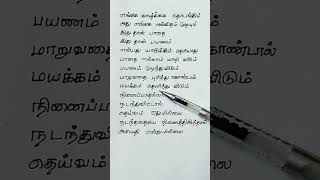 எங்கே வாழ்க்கை தொடங்கும்
அது எங்கே எவ்விதம் முடியும்
இது தான் பாதை
இது தான் பயணம்
என்பது யாருக்கும் தெரியாது
பாதை எல்லாம் மாறி வரும்
பயணம் முடிந்துவிடும்
மாறுவதை புரிந்து கொண்டால்
மயக்கம் தெளிந்து விடும்
நினைப்பதெல்லாம்
நடந்துவிட்டால்
தெய்வம் ஏதுமில்லை
நடந்ததையே நினைத்திருந்தால்
அமைதி என்றுமில்லை
பயணம்
மாறுவதை புரிந்து கொண்டால்
மயக்கம்
நடந்துவிட்டால்
தெய்வம்